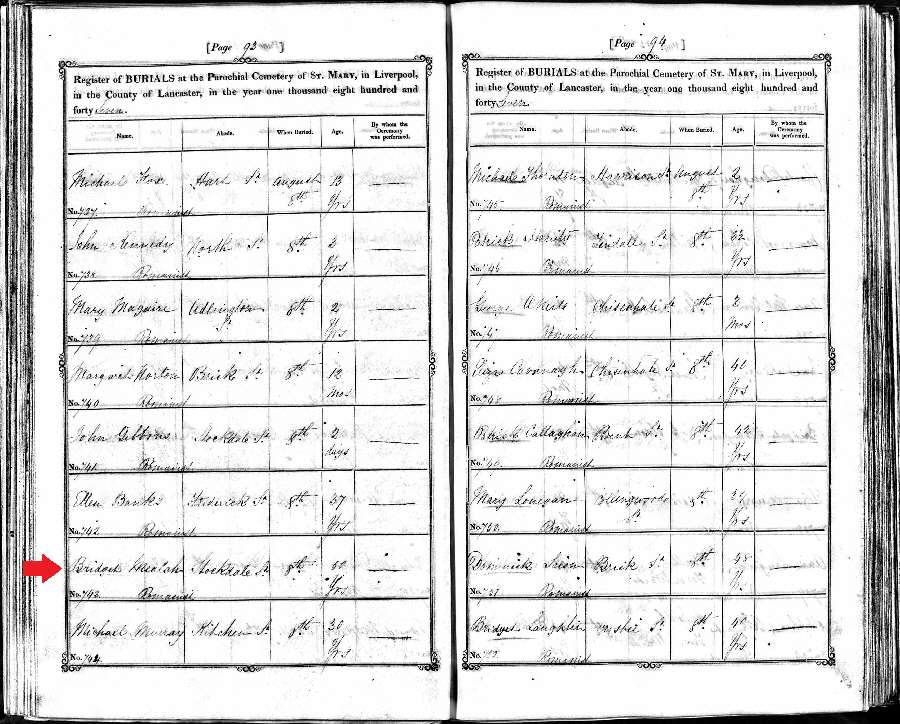 [Page 93 ]
Register of BURIALS at the Parochial Cemetery of ST. MARY, in Liverpool,
in the County of Lancaster, in the year one thousand eight hundred and
forty Seven.
Name. Abode. When Buried. Age. By whom the Ceremony was performed.
Michael Hart St August 13
8th Yrs
No. 737. Romanist
John Kennedy North St 8th 2
Yrs
No. 738. Romanist
Mary Maguire Adlington 8th 2
St Yrs
No. 739 Romanist
Margaret Horton Brick St 8th 12
Mos
No. 740 Romanist
John Gibbons Stockdale St 8th 2
days
No. 741 Romanist
Ellen Banks St 8th 37
Yrs
No. 742 Romanist
Bridget Stockdale St 8th
Yrs
No. 743. Romanist
Michael Murray Kitchen St 8th 30
Yrs
No. 744.
[Page 94 ]
Register of BURIALS at the Parochial Cemetery of ST. MARY, in Liverpool,
in the County of Lancaster, in the year one thousand eight hundred and
forty Seven.
Name. Abode. When Buried. Age. By whom the Ceremony was performed.
Michael Harrison St August 2
8th Yrs
No. 745 Romanist
Patrick St 8th 32
Yrs
No. 746 Romanist
George Chisenhale St 8th 2
Mos
No. 74 Romanist
Cavanagh Chisenhale St 8th 40
Yrs
No. 748 Romanist
Callaghan St 8th 42
Yrs
No. Romanist
Mary Lonegan Collingwood 8th
St Yrs
No. Romanist
Brick St 8th 48
Yrs
No. 751 Romanist
Bridget Laughlin St 8th 40
Yrs
No. Romanist